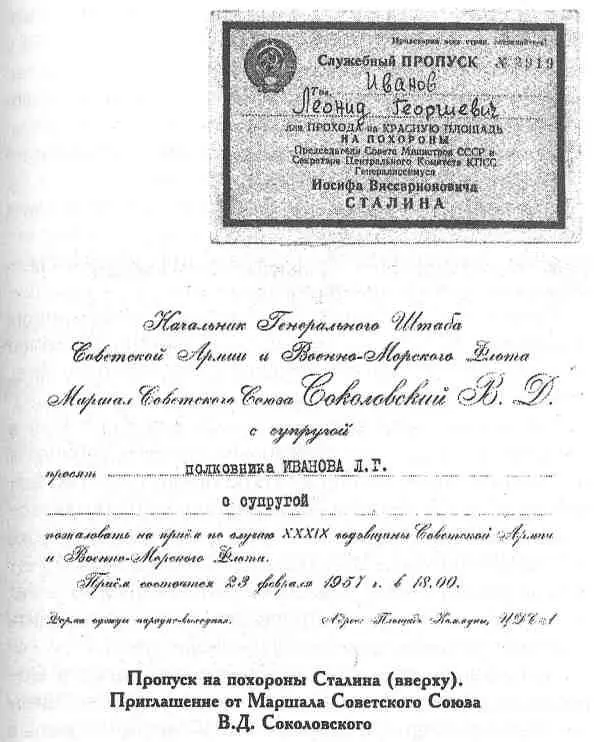 Пролетарии всех стран, соединяйтесь!
Служебный ПРОПУСК № 2919
Тов. Иванов
Леонид Георгиевич
для ПРОХОДА на КРАСНУЮ ПЛОЩАДЬ
НА ПОХОРОНЫ
Председателя Совета Министров СССР и
Секретаря Центрального Комитета КПСС
Генералиссимуса
Иосифа Виссарионовича
СТАЛИНА
Начальник Генерального Штаба
Советской Армии и Военно-Морского Флота
Маршал Советского Союза Соколовский В. Д.
с супругой
просят полковника ИВАНОВА Л.Г.
с супругой
пожаловать на приём по случаю XXXIX годовщины Советской Армии
и Военно-Морского Флота.
Приём состоится 23 февраля 1957 г. в 18.00.
Форма одежды парадно-выходная. Адрес: Площадь Коммуны, ЦДСА
Пропуск на похороны Сталина (вверху).
Приглашение от Маршала Советского Союза
В.Д. Соколовского